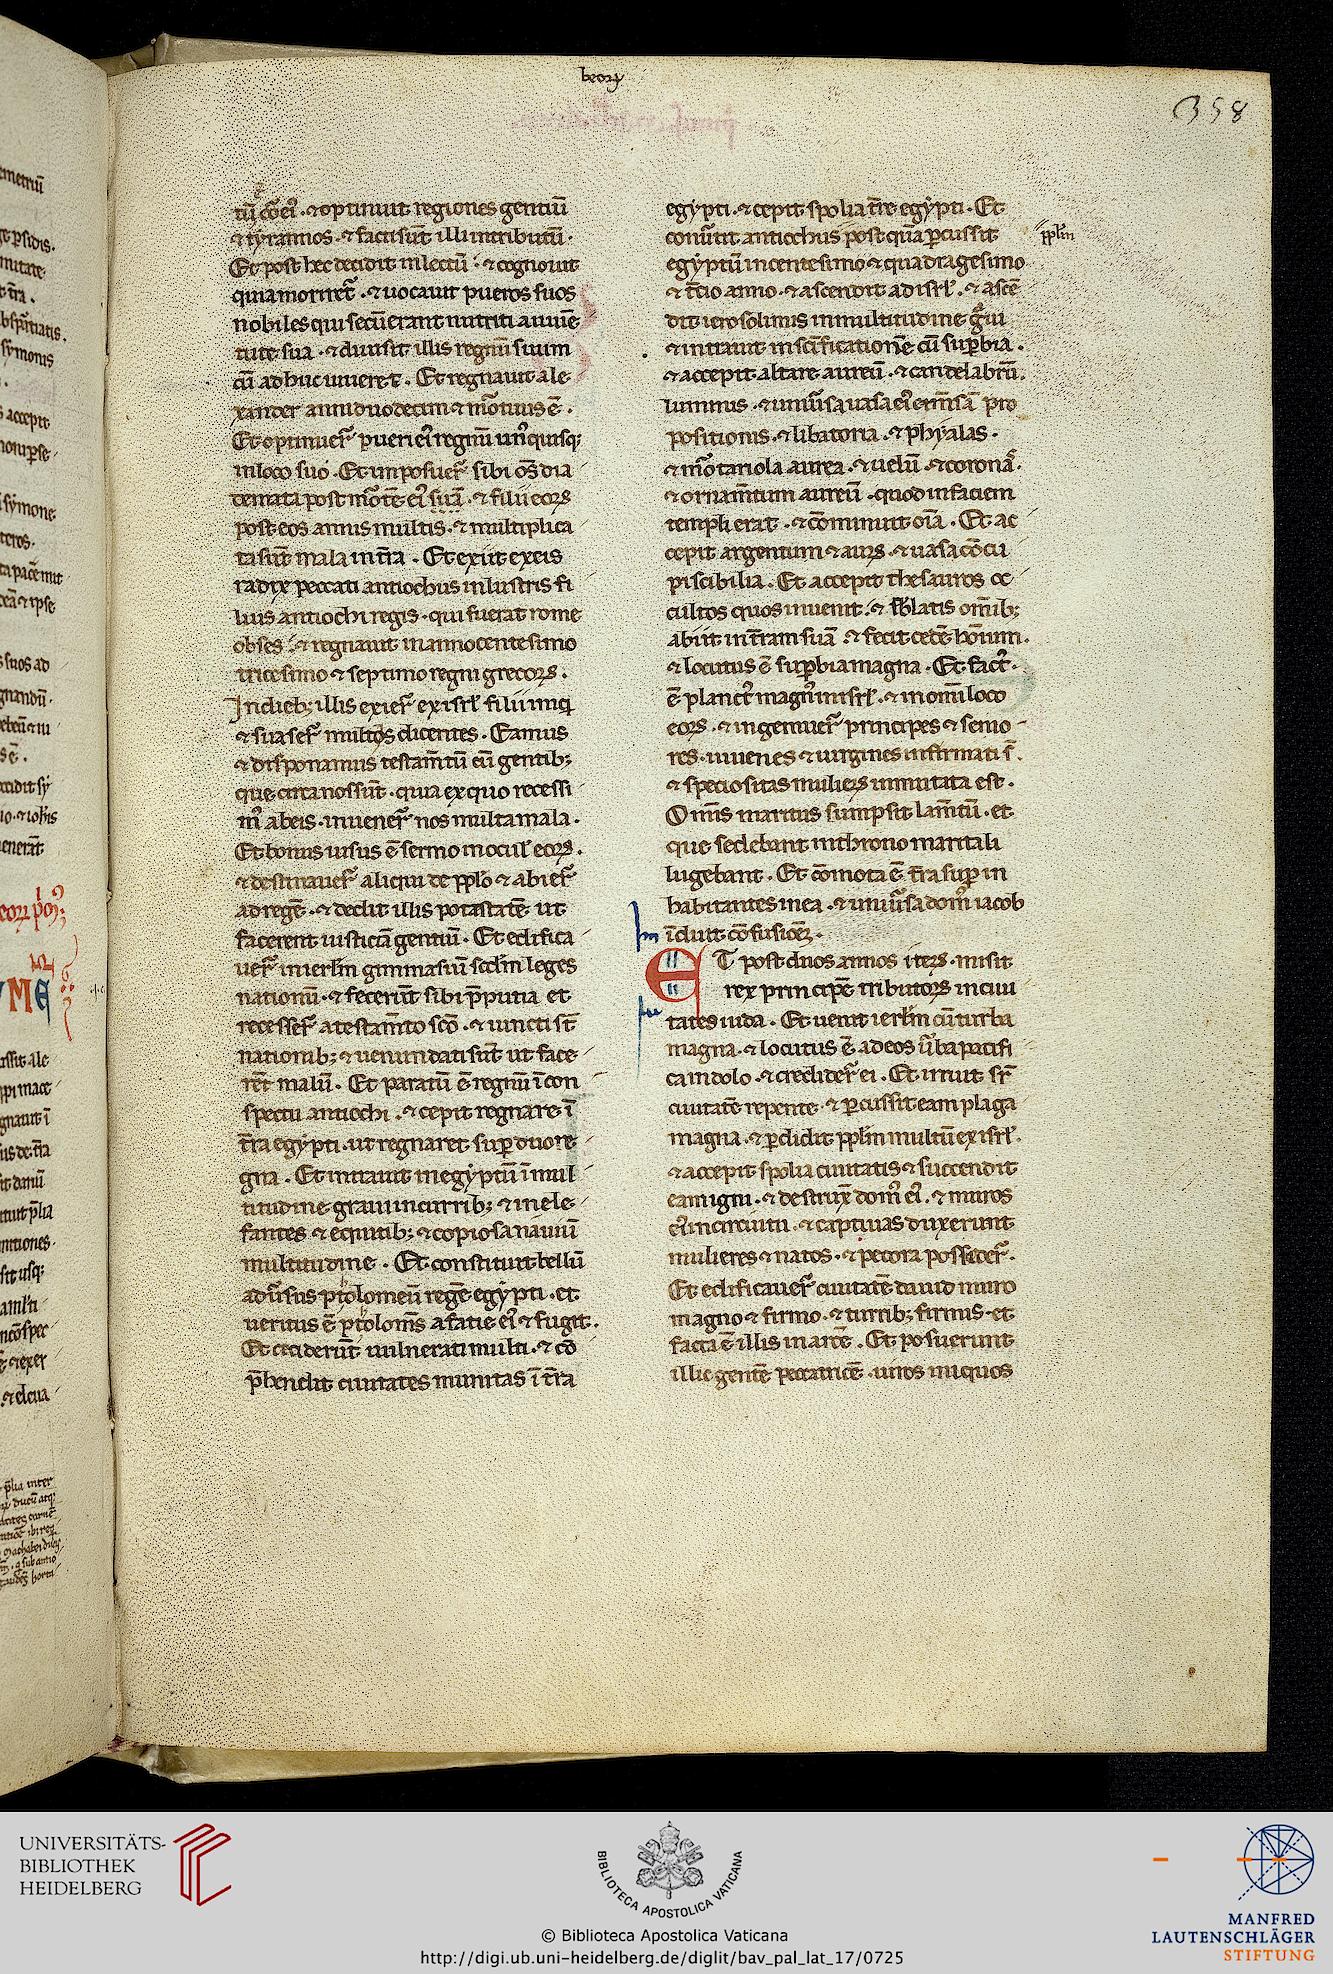 beoꝝ
358
tū cōei᷒ . ⁊ optinuit regiones gentiū
⁊ tyrannos . ⁊ facti sūt illi intributū .
Et post hec decidit in lectū . ⁊ cognouit
quia moriret᷑ . ⁊ uocauit pueros suos
nobiles qui secū erant nutriti a iuuē
tute sua . ⁊ diuisit illis regnū suum
cū ad huc uiueret . Et regnauit ale
xander annis duodecim ⁊ mortuus ē .
Et optinuer̄ pueri ei᷒ regnū un᷒quisq;
in loco suo . Et imposuer̄ sibi oēs dia
demata post mortē ei᷒ suā . ⁊ filii eoꝝ
post eos annis multis . ⁊ multiplica
ta sūt mala in t̄ra . Et exiit ex eis
radix peccati antiochus inlustris fi
lius antiochi regis . qui fuerat rome
obses . ⁊ regnauit in anno centesimo
tricesimo ⁊ septimo regni grecoꝝ .
In dieb; illis exier̄ ex isrl̄ filii iniq
⁊ suaser̄ multos dicentes . Eamus
⁊ disponamus testam̄tū cū gentib;
que circa nos sūt . quia ex quo recessi
m᷒ ab eis . inuener̄ nos multa mala .
Et bonus uisus ē sermo in ocul̄ eoꝝ .
⁊ destinauer̄ aliqui de pplo ⁊ abier̄
ad regē . ⁊ dedit illis potastatē ut
facerent iusticiā gentiū . Et edifica
uer̄ in ierlm̄ gimnasiū scdm̄ leges
nationū . ⁊ fecerūt sibi p̄putia et
recesser̄ a testam̄to sc̄o . ⁊ iuncti st̄
nationib; ⁊ uenundati sūt ut face
rēt malū . Et paratū ē regnū ī con
spectu antiochi . ⁊ cepit regnare ī
t̄ra egypti . ut regnaret sup̄ duo re
gna . Et intrauit in egyptū ī mul
titudine graui in currib; ⁊ in ele
fantes ⁊ equitib; ⁊ copiosa nauiū
multitudine . Et constituit bellū
adūsus ptolomeū regē egypti . et
ueritus ē ptolom̄s a facie ei᷒ ⁊ fugit .
Et ceciderūt uulnerati multi . ⁊ cō
p̄hendit ciuitates munitas ī t̄ra
egypti . ⁊ cepit spolia t̄re egypti . Et
conūtit antiochus post quā ꝑcussit
pplm̄
egyptū in centesimo ⁊ quadragesimo
⁊ t̄cio anno . ⁊ ascendit ad isrl̄ . ⁊ ascē
dit ierosolimis in multitudine g̊ui
⁊ intrauit in sc̄ificationē cū suꝑbia .
⁊ accepit altare aureū . ⁊ candelabrū
luminis . ⁊ uniūsa uasa ei᷒ ⁊ m̄sā pro
positionis . ⁊ libatoria . ⁊ phyalas .
⁊ mortariola aurea . ⁊ uelū . ⁊ coronā .
⁊ ornam̄tum aureū . quod in faciem
templi erat . ⁊ cōminuit oīa . Et ac
cepit argentum ⁊ auꝝ . ⁊ uasa cōcu
piscibilia . Et accepit thesauros oc
cultos quos inuenit . ⁊ sblatis omīb;
abiit in t̄ram suā . ⁊ fecit cedē hōinum .
⁊ locutus ē suꝑbia magna . Et fact᷒
ē planct᷒ magn᷒ in isrl̄ . ⁊ in omi loco
eoꝝ . ⁊ ingemuer̄ principes ⁊ senio
res . iuuenes ⁊ uirgines infirmati s̄ .
⁊ speciositas mulieꝝ immutata est .
Omīs maritus sumpsit lam̄tū . et
que sedebant in throno maritali
lugebant . Et cōmota ē t̄ra suꝑ in
habitantes in ea . ⁊ uniūsa dom᷒ iacob
īduit cōfusionē .
ET post duos annos iteꝝ . misit
rex principē tributoꝝ in ciui
tates iuda . Et uenit ierlm̄ cū turba
magna . ⁊ locutus ē ad eos ūba pacifi
ca in dolo . ⁊ crediderr̄ ei . Et irruit sr̄
ciuitatē repente . ⁊ ꝑcussit eam plaga
magna . ⁊ ꝑdidit pplm̄ multū ex isrl̄ .
⁊ accepit spolia ciuitatis ⁊ succendit
eam igni . ⁊ destruxᷣ dom᷒ ei᷒ . ⁊ muros
ei᷒ in circuitu . ⁊ captiuas duxerunt
mulieres ⁊ natos . ⁊ pecora posseder̄ .
Et edificauer̄ ciuitatē dauid muro
magno ⁊ firmo . ⁊ turrib; firmis . et
facta ē illis in arcē . Et posuerunt
illic gentē peccatricē . uiros iniquos
UNIVERSITÄTS-
BIBLIOTHEK
HEIDELBERG
BIBLIOTECA APOSTOLICA VATICANA
© Biblioteca Apostolica Vaticana
http://digi.ub.uni-heidelberg.de/diglit/bav_pal_lat_17/0725
MANFRED
LAUTENSCHLÄGER
STIFTUNG